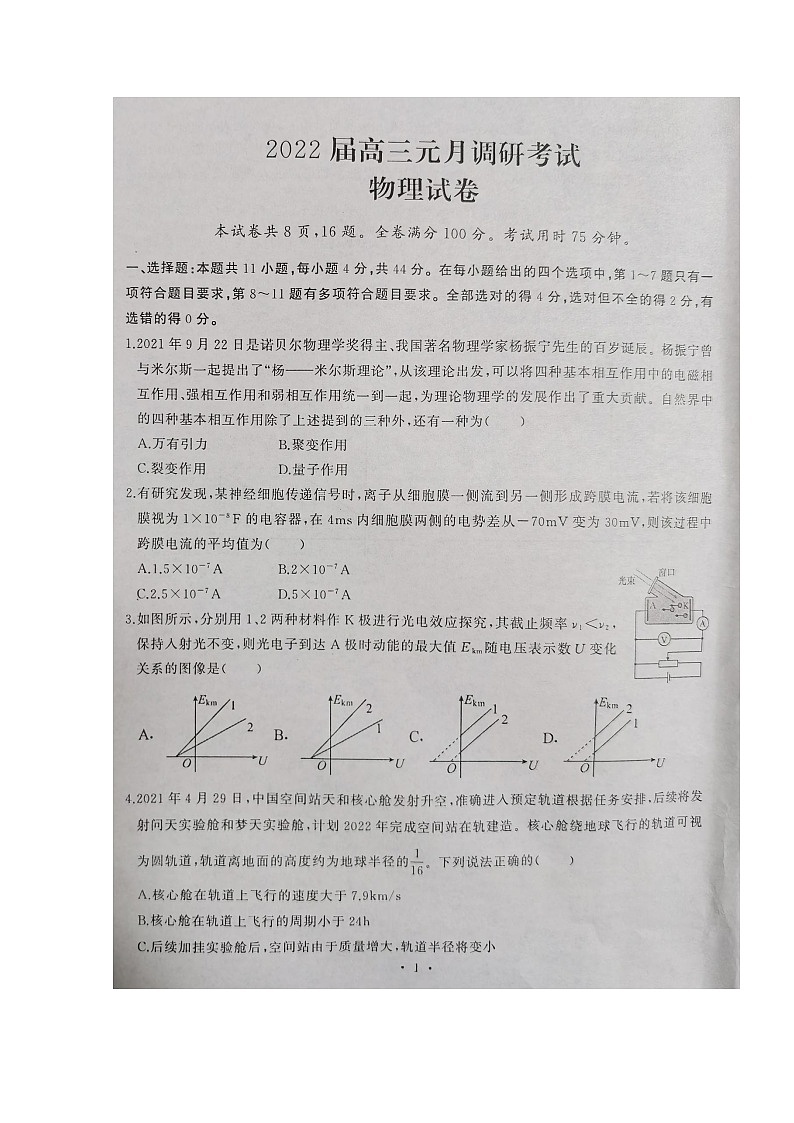 2022 届高三元月调研考试
物理试卷
本试卷共 8 页,16 题。全卷满分 100 分。考试用时 75 分钟。
一、选择题:本题共 11 小题,每小题 4 分,共 44 分。在每小题给出的四个选项中,第 1～7 题只有一
项符合题目要求,第 8～11 题有多项符合题目要求。全部选对的得 4 分,选对但不全的得 2 分,有
选错的得 0 分。
1.2021 年 9 月 22 日是诺贝尔物理学奖得主、我国著名物理学家杨振宁先生的百岁诞辰。杨振宁曾
与米尔斯一起提出了“杨——米尔斯理论”,从该理论出发,可以将四种基本相互作用中的电磁相
互作用、强相互作用和弱相互作用统一到一起,为理论物理学的发展作出了重大贡献。自然界中
的四种基本相互作用除了上述提到的三种外,还有一种为(　　)
A.万有引力 B.聚变作用
C.裂变作用 D.量子作用
2.有研究发现,某神经细胞传递信号时,离子从细胞膜一侧流到另一侧形成跨膜电流,若将该细胞
膜视为 1×10⁻⁸F 的电容器,在 4ms 内细胞膜两侧的电势差从－70mV 变为 30mV,则该过程中
跨膜电流的平均值为(　　)
A.1.5×10⁻⁷A B.2×10⁻⁷A
C.2.5×10⁻⁷A D.5×10⁻⁷A
光束 窗口
A K
A
V
3.如图所示,分别用 1、2 两种材料作 K 极进行光电效应探究,其截止频率 ν₁＜ν₂,
保持入射光不变,则光电子到达 A 极时动能的最大值 Eₖₘ随电压表示数 U 变化
关系的图像是(　　)
A. Eₖₘ 1 2 O U
B. Eₖₘ 2 1 O U
C. Eₖₘ 1 2 O U
D. Eₖₘ 2 1 O U
4.2021 年 4 月 29 日,中国空间站天和核心舱发射升空,准确进入预定轨道根据任务安排,后续将发
射问天实验舱和梦天实验舱,计划 2022 年完成空间站在轨建造。核心舱绕地球飞行的轨道可视
为圆轨道,轨道离地面的高度约为地球半径的1/16。下列说法正确的(　　)
A.核心舱在轨道上飞行的速度大于 7.9km/s
B.核心舱在轨道上飞行的周期小于 24h
C.后续加挂实验舱后,空间站由于质量增大,轨道半径将变小
· 1 ·